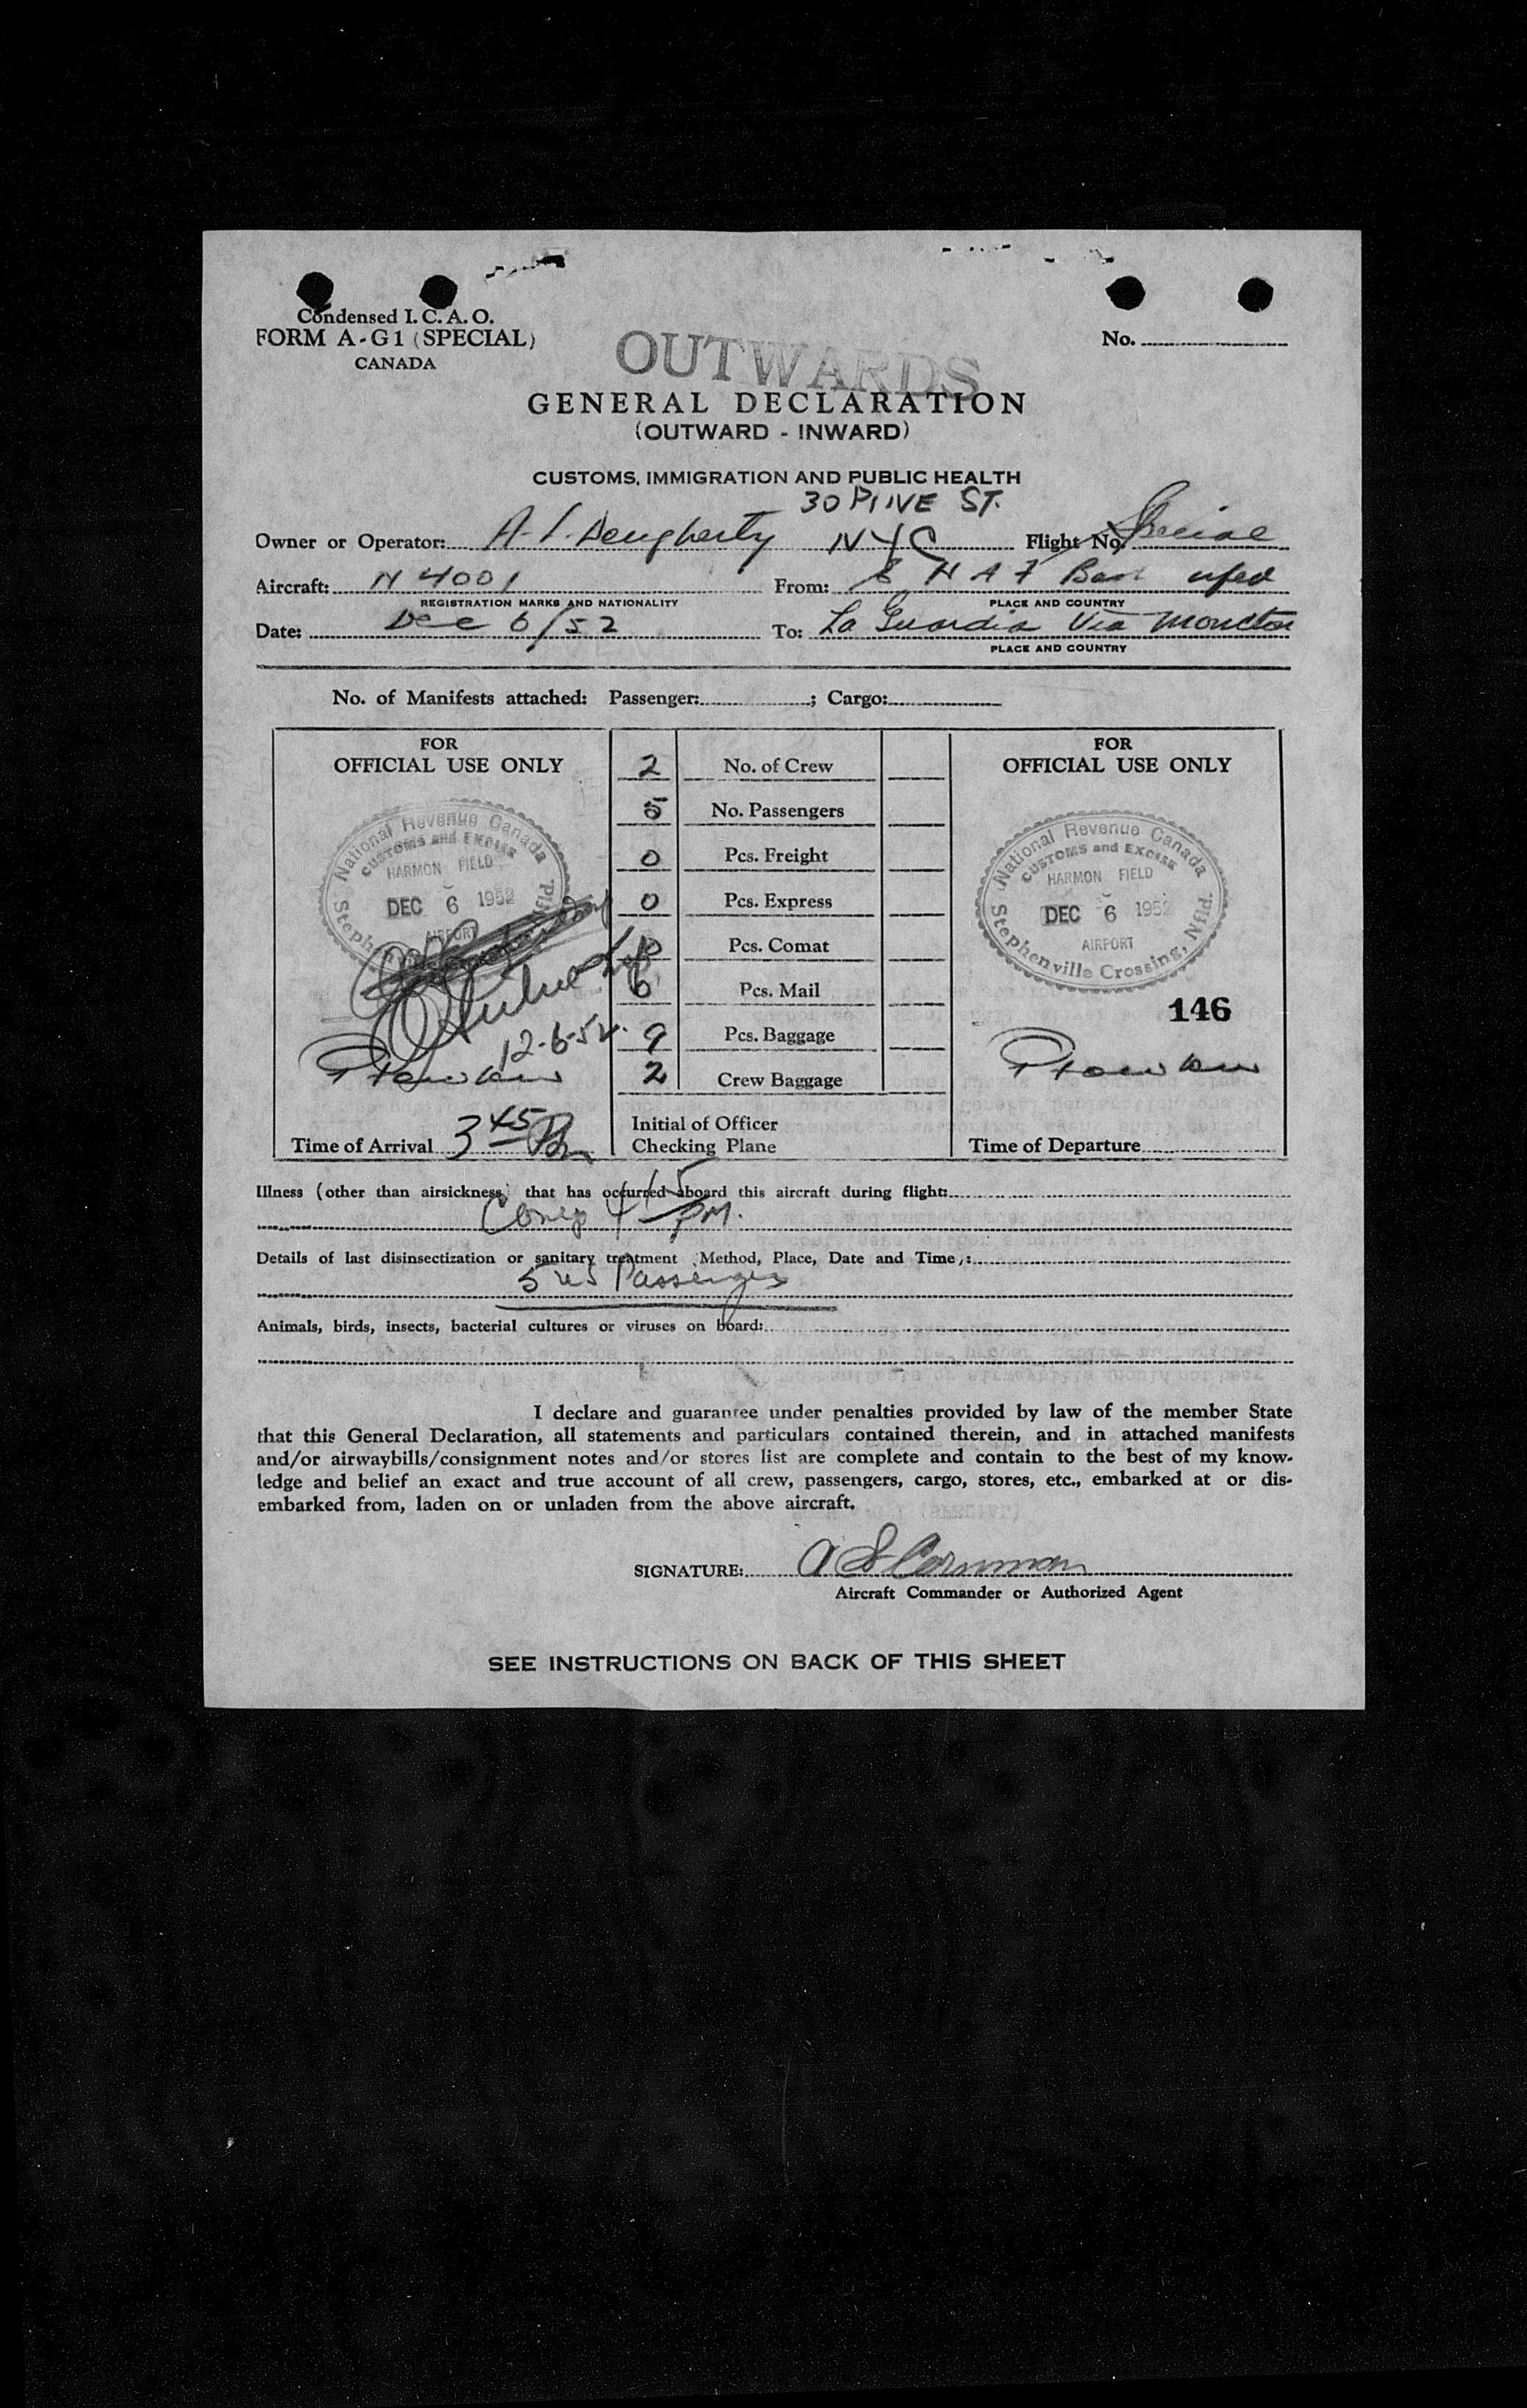 Condensed I. C. A. O.
FORM A-G1 (SPECIAL)
CANADA
No.
OUTWARDS
GENERAL DECLARATION
(OUTWARD - INWARD)
CUSTOMS, IMMIGRATION AND PUBLIC HEALTH
30 PINE ST.
Owner or Operator: A. Dougherty NYC Flight No. Special
Aircraft: N 4001 From: Nfld
REGISTRATION MARKS AND NATIONALITY PLACE AND COUNTRY
Date: Dec 6/52 To: La Guardia Via Moncton
PLACE AND COUNTRY
No. of Manifests attached: Passenger: ; Cargo:
FOR
OFFICIAL USE ONLY
National Revenue Canada
CUSTOMS and EXCISE
HARMON FIELD
DEC 6 1952
AIRPORT
12-6-52
Time of Arrival 3 45 Pm
2 No. of Crew
5 No. Passengers
0 Pcs. Freight
0 Pcs. Express
0 Pcs. Comat
0 Pcs. Mail
9 Pcs. Baggage
2 Crew Baggage
Initial of Officer
Checking Plane
FOR
OFFICIAL USE ONLY
National Revenue Canada
CUSTOMS and EXCISE
HARMON FIELD
DEC 6 1952
AIRPORT
Stephenville Crossing, Nfld.
146
Time of Departure
Illness (other than airsickness) that has occurred aboard this aircraft during flight:
Comp 4 15 PM.
Details of last disinsectization or sanitary treatment (Method, Place, Date and Time):
5 US Passengers
Animals, birds, insects, bacterial cultures or viruses on board:
I declare and guarantee under penalties provided by law of the member State
that this General Declaration, all statements and particulars contained therein, and in attached manifests
and/or airwaybills/consignment notes and/or stores list are complete and contain to the best of my know-
ledge and belief an exact and true account of all crew, passengers, cargo, stores, etc., embarked at or dis-
embarked from, laden on or unladen from the above aircraft.
SIGNATURE:
Aircraft Commander or Authorized Agent
SEE INSTRUCTIONS ON BACK OF THIS SHEET